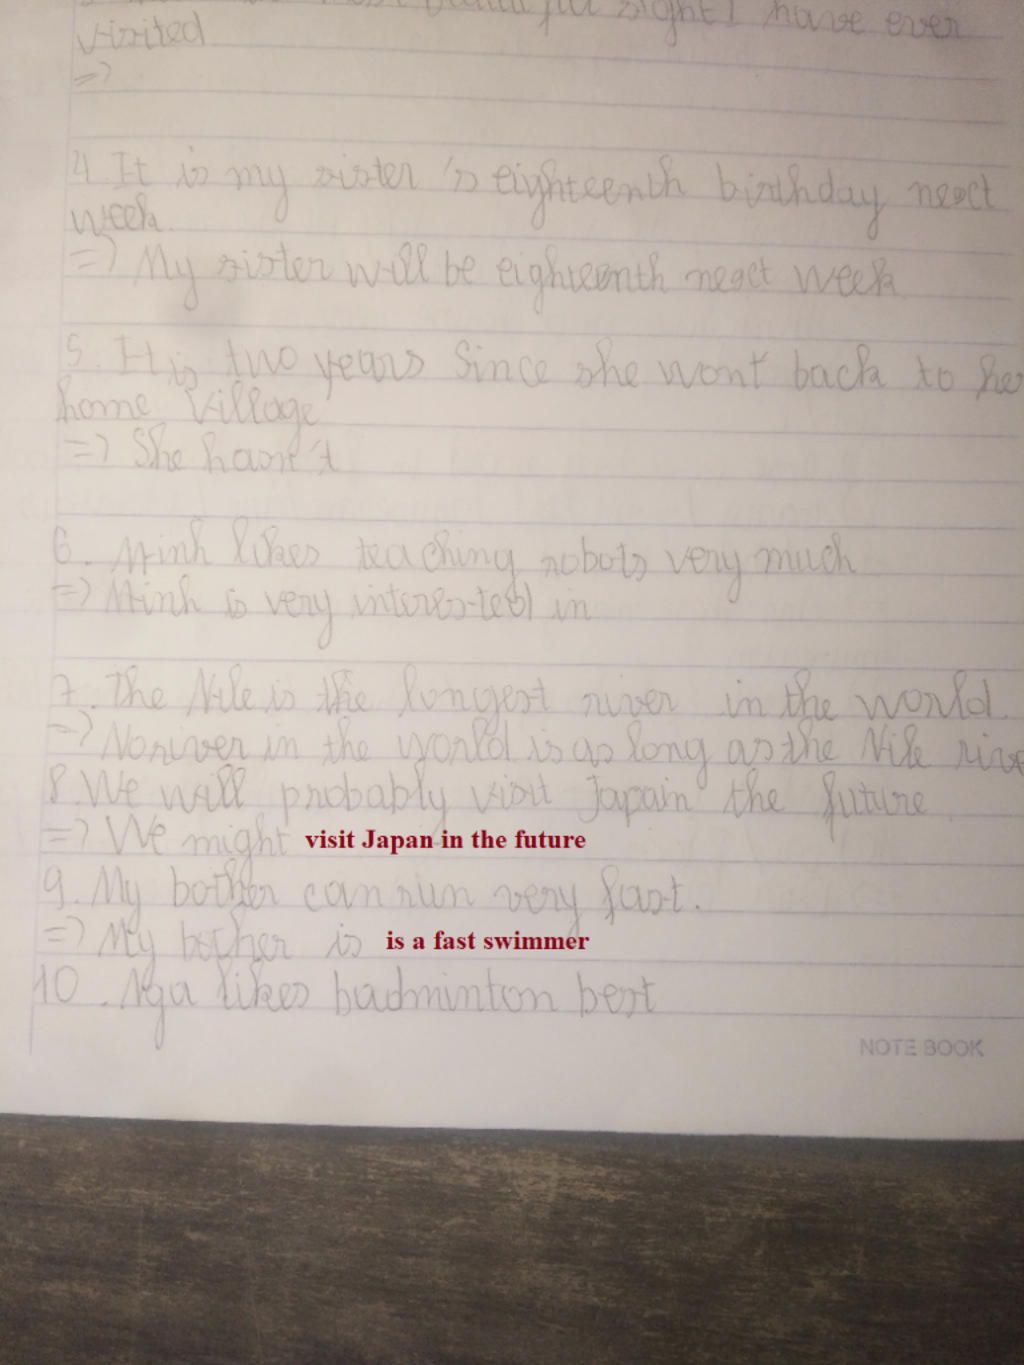 sight I have ever
visited
=>
4. It is my sister's eighteenth birthday next
week.
=> My sister will be eighteenth next week
5. It is two years Since she wont back to her
home village
=> She hasn't
6. Minh likes teaching robots very much
=> Minh is very interested in
7. The Nile is the longest river in the world.
=> No river in the world is as long as the Nile rive
8. We will probably visit Japain the future
=> We might visit Japan in the future
9. My bother can run very fast.
=> My bother is is a fast swimmer
10. Nga likes badminton best
NOTE BOOK